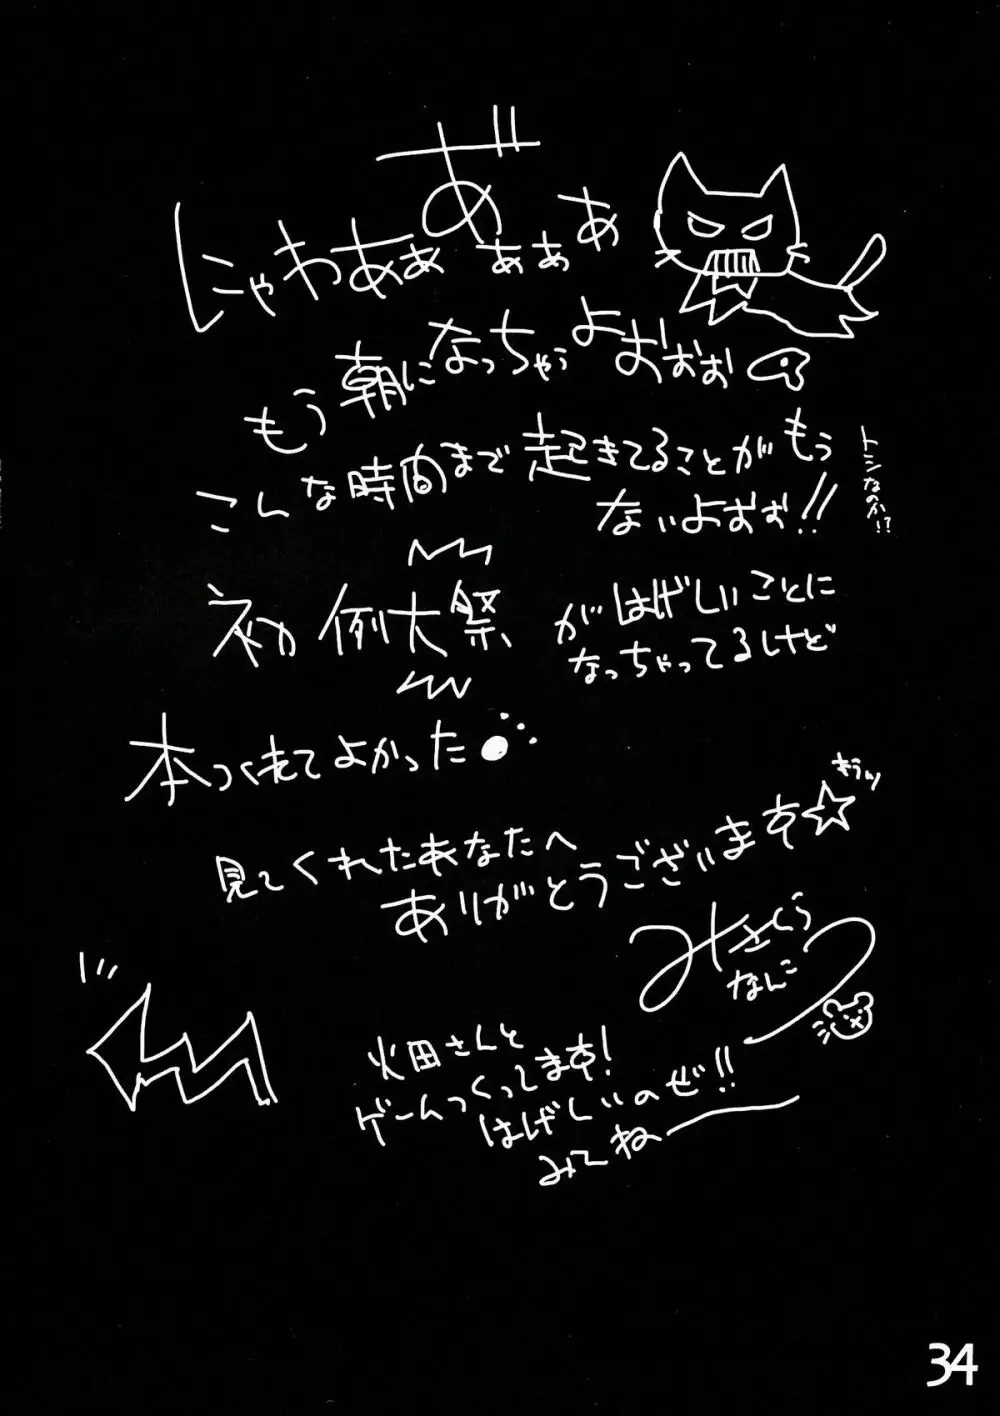 にゃわあぁあ゛ぁぁあ
もう朝になっちゃうよおぉぉ
こんな時間まで起きてることがもう
ないよぉぉ!!
トシなのか!?
初例大祭
がはげしいことに
なっちゃってるけど
本つくれてよかった
見てくれたあなたへ
ありがとうございます☆
キラッ
みさくら
なんこ
火田さんと
ゲームつくってます!
はげしいのぜ!!
みてねー
34